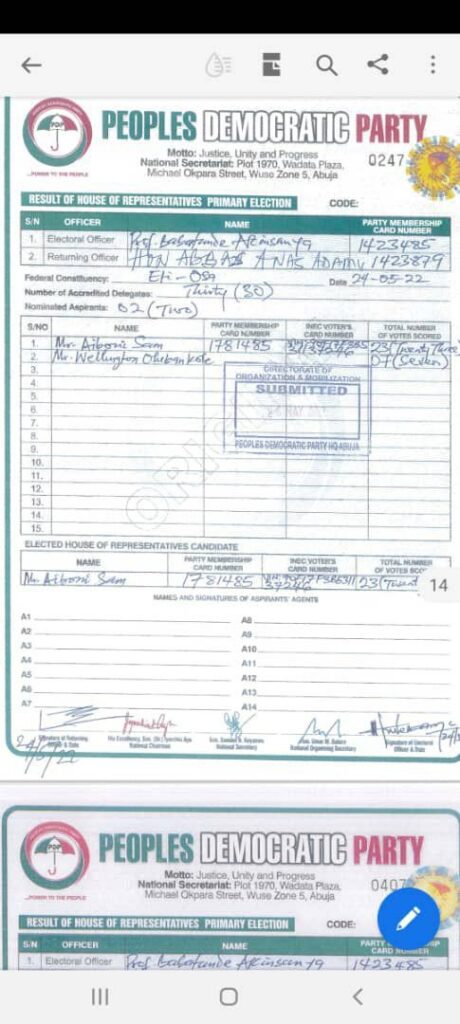 PDP
...POWER TO THE PEOPLE
PEOPLES DEMOCRATIC PARTY
Motto: Justice, Unity and Progress
National Secretariat: Plot 1970, Wadata Plaza,
Michael Okpara Street, Wuse Zone 5, Abuja
0247
RESULT OF HOUSE OF REPRESENTATIVES PRIMARY ELECTION CODE:
S/N OFFICER NAME PARTY MEMBERSHIP CARD NUMBER
1. Electoral Officer Prof. Babatunde 1423485
2. Returning Officer HON ABBAS ANAS ADAMU 1423879
Federal Constituency: Eti-Osa Date 24-05-22
Number of Accredited Delegates: Thirty (30)
Nominated Aspirants: 02 (Two)
S/NO NAME PARTY MEMBERSHIP CARD NUMBER INEC VOTER'S CARD NUMBER TOTAL NUMBER OF VOTES SCORED
1. Mr. Aiboni Sam 1781485 37246 23 (Twenty Three
2. Mr. Wellington Olubankole 07 (Seven)
3.
4.
5.
6.
7.
8.
9.
10.
11.
12.
13.
14.
15.
DIRECTORATE OF
ORGANIZATION & MOBILIZATION
SUBMITTED
MAY
PEOPLES DEMOCRATIC PARTY HQ ABUJA
ORIGINAL
ELECTED HOUSE OF REPRESENTATIVES CANDIDATE
NAME PARTY MEMBERSHIP CARD NUMBER INEC VOTER'S CARD NUMBER TOTAL NUMBER OF VOTES SCO
Mr. Aiboni Sam 1781485 37246 23 (Twent
14
NAMES AND SIGNATURES OF ASPIRANTS' AGENTS
A1 A8
A2 A9
A3 A10
A4 A11
A5 A12
A6 A13
A7 A14
24/5/22
Signature of Returning Officer & Date
National Chairman
National Secretary
National Organising Secretary
Signature of Electoral Officer & Date
PDP
...POWER TO THE PEOPLE
PEOPLES DEMOCRATIC PARTY
Motto: Justice, Unity and Progress
National Secretariat: Plot 1970, Wadata Plaza,
Michael Okpara Street, Wuse Zone 5, Abuja
0407
RESULT OF HOUSE OF REPRESENTATIVES PRIMARY ELECTION CODE:
S/N OFFICER NAME PARTY CARD NUMBER
1. Electoral Officer Prof. Babatunde 1423485